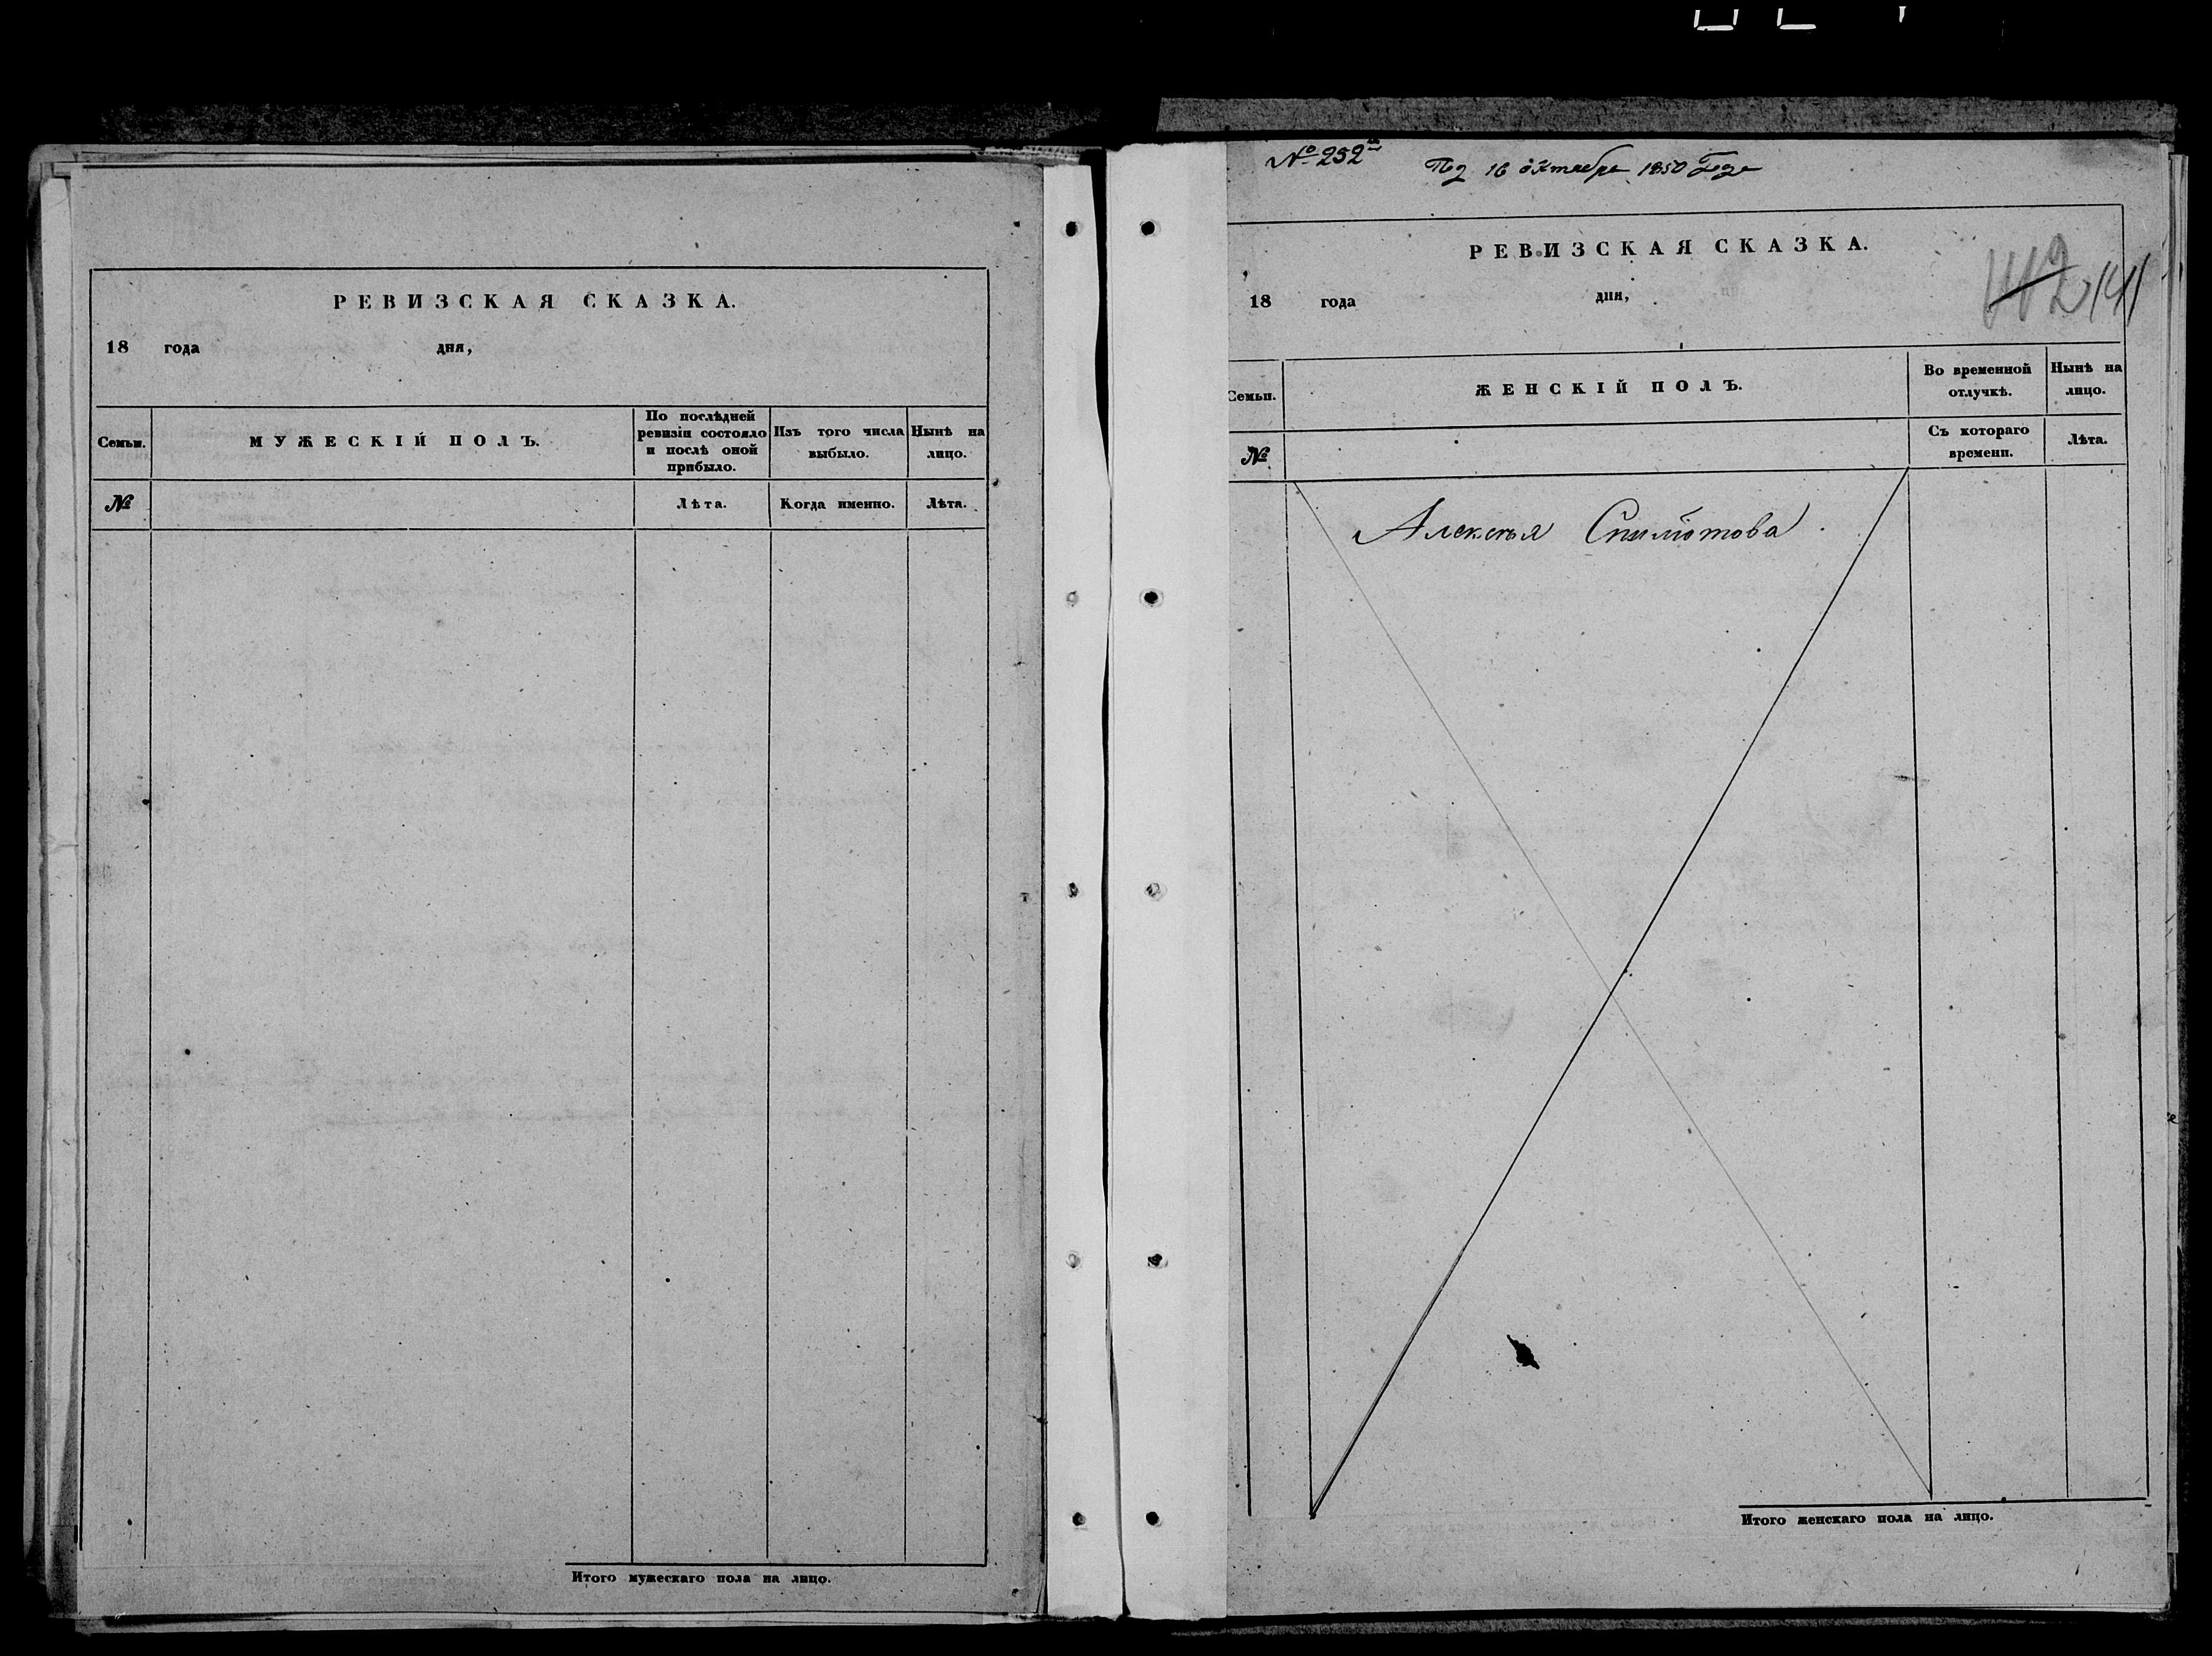 РЕВИЗСКАЯ СКАЗКА.
18 года дня,
Семьи.
МУЖЕСКІЙ ПОЛЪ.
По послѣдней
ревизіи состояло
и послѣ оной
прибыло.
Изъ того числа
выбыло.
Нынѣ на
лицо.
№
Лѣта.
Когда именно.
Лѣта.
Итого мужескаго пола на лицо.
№ 252
16 октября 1850 года
РЕВИЗСКАЯ СКАЗКА.
18 года дня,
141
Семьи.
ЖЕНСКІЙ ПОЛЪ.
Во временной
отлучкѣ.
Нынѣ на
лицо.
№
Съ котораго
времени.
Лѣта.
Алексѣя
Итого женскаго пола на лицо.